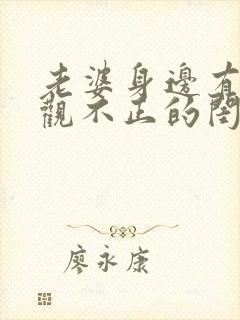 老婆身邊有
觀不正的閨
廖永康